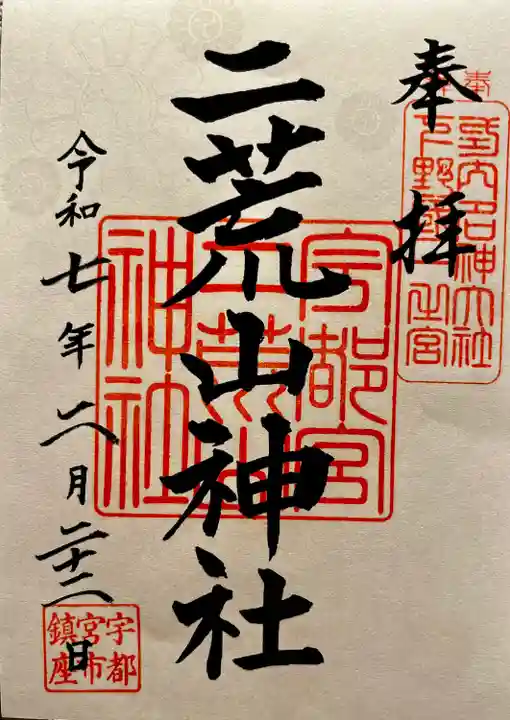 奉拝
式内名神大社
下野國一之宮
二荒山神社
宇都宮
二荒山
神社
令和七年六月二十二日
宇都
宮市
鎮座